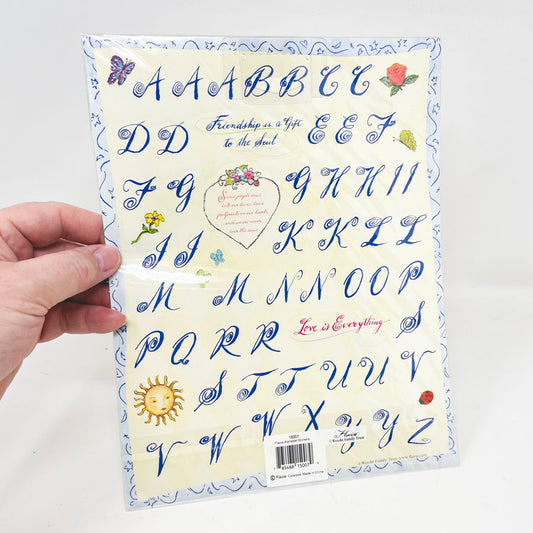 A A A B B C C
Friendship is a Gift
to the Soul
D D E E F
F G G H H I I
Some people come
into our lives, leave
footprints on our hearts,
and we are never
ever the same
J J K K L L
M M N N O O P
P Q R R Love is Everything S
S T T U U V
V W W X Y Y Z
15007
Flavia Alphabet Stickers
© Flavia
Made in China
Flavia
©Weedn Family Trust www.flavia.com